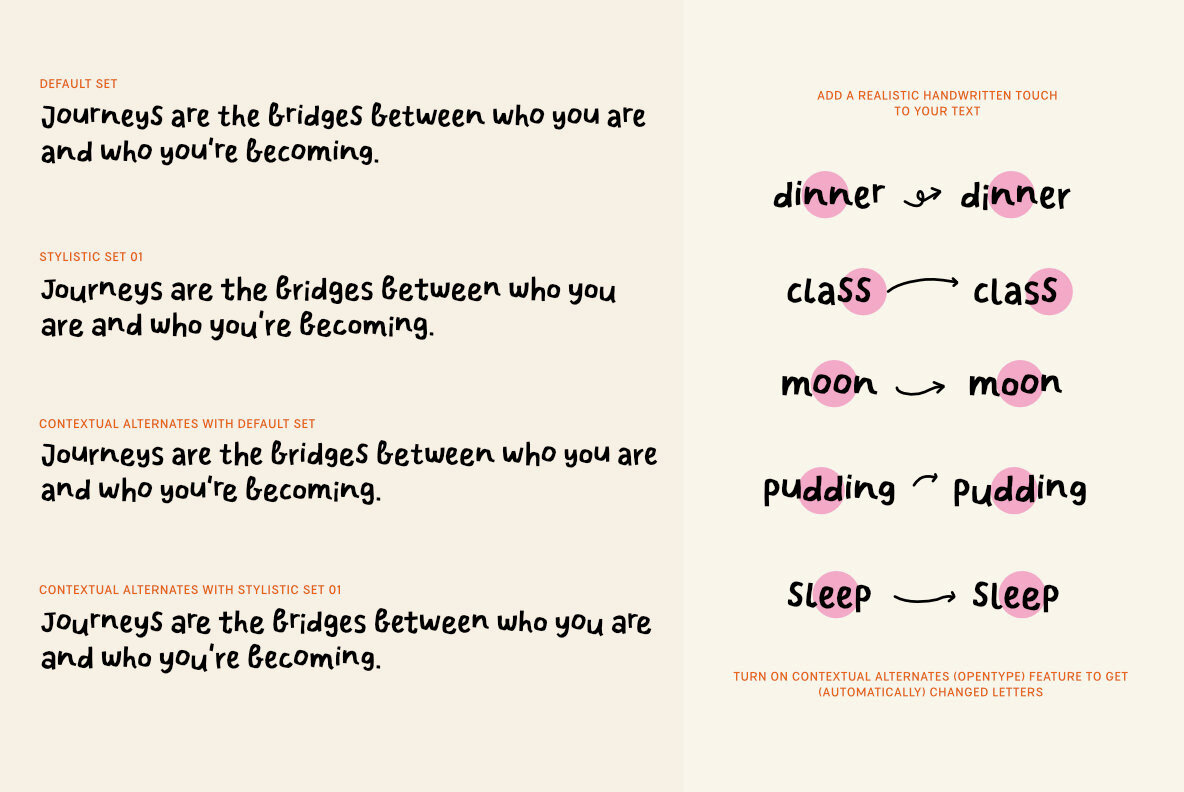 DEFAULT SET
Journeys are the bridges between who you are
and who you're becoming.
STYLISTIC SET 01
Journeys are the bridges between who you
are and who you're becoming.
CONTEXTUAL ALTERNATES WITH DEFAULT SET
Journeys are the bridges between who you are
and who you're becoming.
CONTEXTUAL ALTERNATES WITH STYLISTIC SET 01
Journeys are the bridges between who you are
and who you're becoming.
ADD A REALISTIC HANDWRITTEN TOUCH
TO YOUR TEXT
dinner dinner
class class
moon moon
pudding pudding
sleep sleep
TURN ON CONTEXTUAL ALTERNATES (OPENTYPE) FEATURE TO GET
(AUTOMATICALLY) CHANGED LETTERS